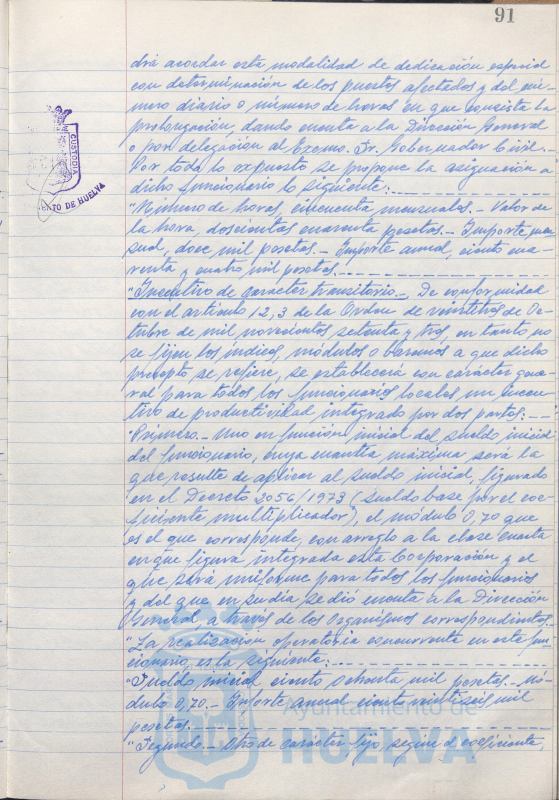 91
drá acordar esta modalidad de dedicación especial
con determinación de los puestos afectados y del nú-
mero diario o número de horas en que consista la
prolongación, dando cuenta a la Dirección General
o por delegación al Excmo. Sr. Gobernador Civil.
Por todo lo expuesto se propone la asignación a
dicho funcionario lo siguiente:
"Número de horas, cincuenta mensuales.- Valor de
la hora, doscientas cuarenta pesetas.- Importe men-
sual, doce mil pesetas.- Importe anual, ciento cua-
renta y cuatro mil pesetas.
"Incentivo de carácter transitorio.- De conformidad
con el artículo 12,3 de la Orden de veintitrés de Oc-
tubre de mil novecientos setenta y tres en tanto no
se fijen los índices, módulos o baremos a que dicho
precepto se refiere, se establecerá con carácter gene-
ral para todos los funcionarios locales un incen-
tivo de productividad integrado por dos partes:
"Primero.- Uno en función inicial del sueldo inicial
del funcionario, cuya cuantía máxima será la
que resulte de aplicar al sueldo inicial, figurado
en el Decreto 2056/1973 (sueldo base por el coe-
ficiente multiplicador), el módulo 0,70 que
es el que corresponde, con arreglo a la clase cuarta
en que figura integrada esta Corporación y el
que será uniforme para todos los funcionarios
y del que en su día se dió cuenta a la Dirección
General a través de los Organismos correspondientes.
"La realización operatoria concurrente en este fun-
cionario, es la siguiente:
"Sueldo inicial ciento ochenta mil pesetas.- Mó-
dulo 0,70.- Importe anual ciento veintiseis mil
pesetas.
"Segundo.- Otro de carácter fijo, según el coeficiente,
CUSTODIA
NTO DE HUELVA
Ayuntamiento de
HUELVA